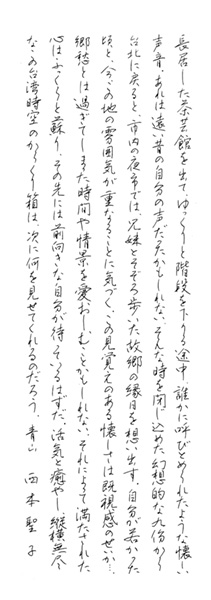 長居した茶芸館を出て、ゆっくりと階段を下りる途中、誰かに呼びとめられたような懐しい
声音。あれは遠い昔の自分の声だったかもしれない。そんな時を閉じ込めた幻想的な九份から
台北に戻ると、市内の夜市では、兄妹とそぞろ歩いた故郷の縁日を想い出す。自分が若かった
頃と、今、この地の雰囲気が重なることに気づく。この見覚えのある懐しさは既視感のせいか…
郷愁とは過ぎてしまった時間や情景を愛おしむことかもしれない。それによって満たされた
心はふっくらと蘇り、その先には前向きな自分が待っているはずだ。活気と癒やし、縦横無尽
なこの台湾時空のからくり箱は、次に何を見せてくれるのだろう。青山 西本聖子